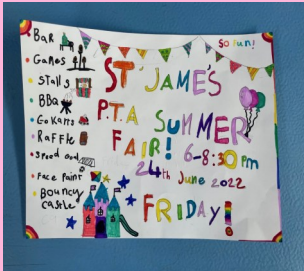 Bar
Games
Stalls
BBQ
Go Karts
Raffle
Face Paint
Bouncy
castle
So Fun!
ST JAME'S
P.T.A SUMMER
FAIR! 6-8:30 pm
24th June 2022
FRIDAY!